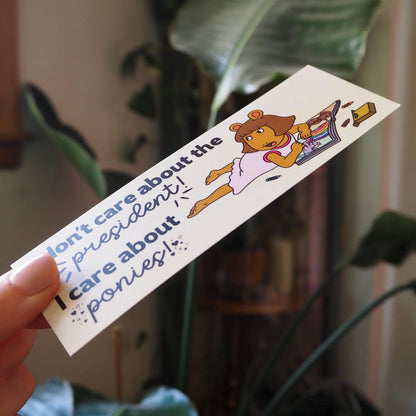 don't care about the
president!
I care about
ponies!